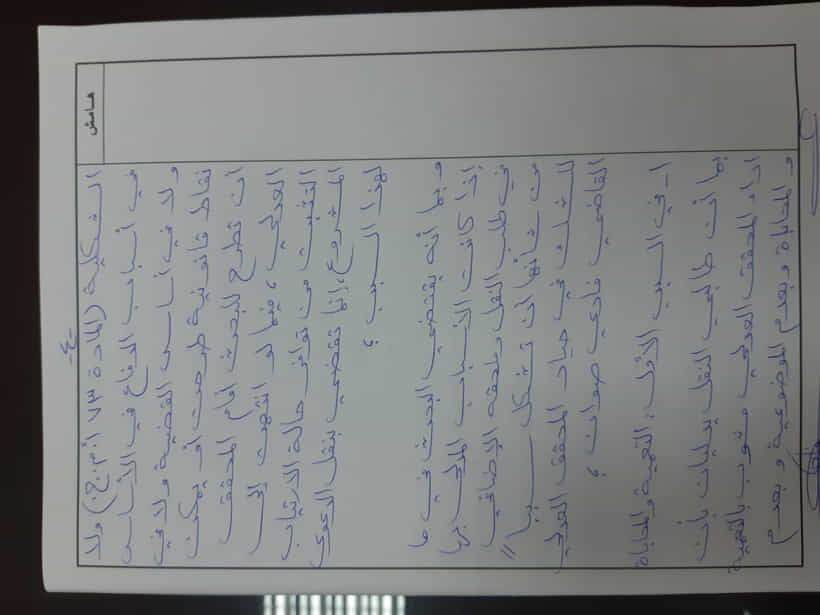 هامش
-٤-
الشكلية (المادة ٧٣ أ.م.ج.) ولا
في أسباب الدفاع في الأساس
ولا في أساس القضية ولا في
نقاط قانونية طرحت أو يمكن
ان تطرح للبحث أمام المحقق
العدلي، وإنما
التثبت من توافر حالة الارتياب
المشروع، إنما تقتضي بنقل الدعوى
لهذا السبب؛
وبما أنه يقتضي البحث في ما
إذا كانت الأسباب المدلى بها
في طلب النقل وملحقه الإضافي
من شأنها ان تشكل سبباً
للشك في حياد المحقق العدلي
القاضي فادي صوان؛
١- في السبب الأول: التبعية والمحاباة
بما أن طالبي النقل يدليان بأن
أداء المحقق العدلي مشوب بالتبعية
والمحاباة وبعدم الموضوعية وبعدم